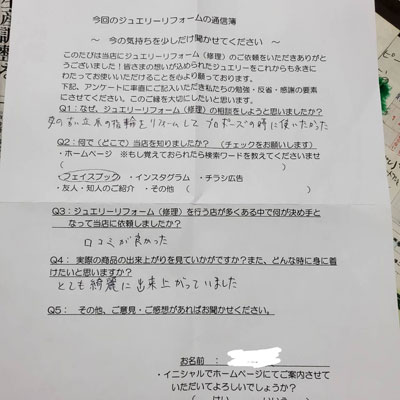 今回のジュエリーリフォームの通信簿
～ 今の気持ちを少しだけ聞かせてください ～
このたびは当店にジュエリーリフォーム（修理）のご依頼をいただきありがと
うございました！皆さまの想いが込められたジュエリーをこれからも永きに
わたってお使いいただけることを心より願っております。
下記、アンケートに率直にご記入いただき私たちの勉強・反省・感謝の要素
にさせてください。このご縁を大切にしたいと思います。
Q1：なぜ、ジュエリーリフォーム（修理）の相談をしようと思いましたか？
の指輪をリフォームして プロポーズの時に使いたかった
Q2：何で（どこで）当店を知りましたか？ （チェックをお願いします）
・ホームページ ※もし覚えておられたら検索ワードを教えてくださいませ
（ ）
・フェイスブック ・インスタグラム ・チラシ広告
・友人・知人のご紹介 ・その他（ ）
Q3：ジュエリーリフォーム（修理）を行う店が多くある中で何が決め手と
なって当店に依頼しましたか？
口コミが良かった
Q4： 実際の商品の出来上がりを見ていかがですか？また、どんな時に身に着
けたいと思いますか？
とても綺麗に出来上がっていました
Q5： その他、ご意見・ご感想があればお聞かせください。
お名前：
・イニシャルでホームページにてご案内させて
いただいてよろしいでしょうか？
（ はい いいえ ）